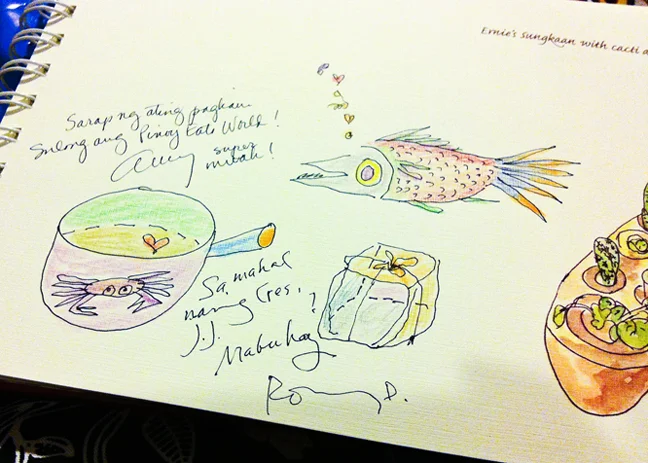 Ernie's Sungkaan with cacti a
Sarap ng ating pagkain
Sulong ang Pinoy Eats World!
Amy super
mwah!
Sa mahal
naming Cres,
J.J.
Mabuhay!
D.